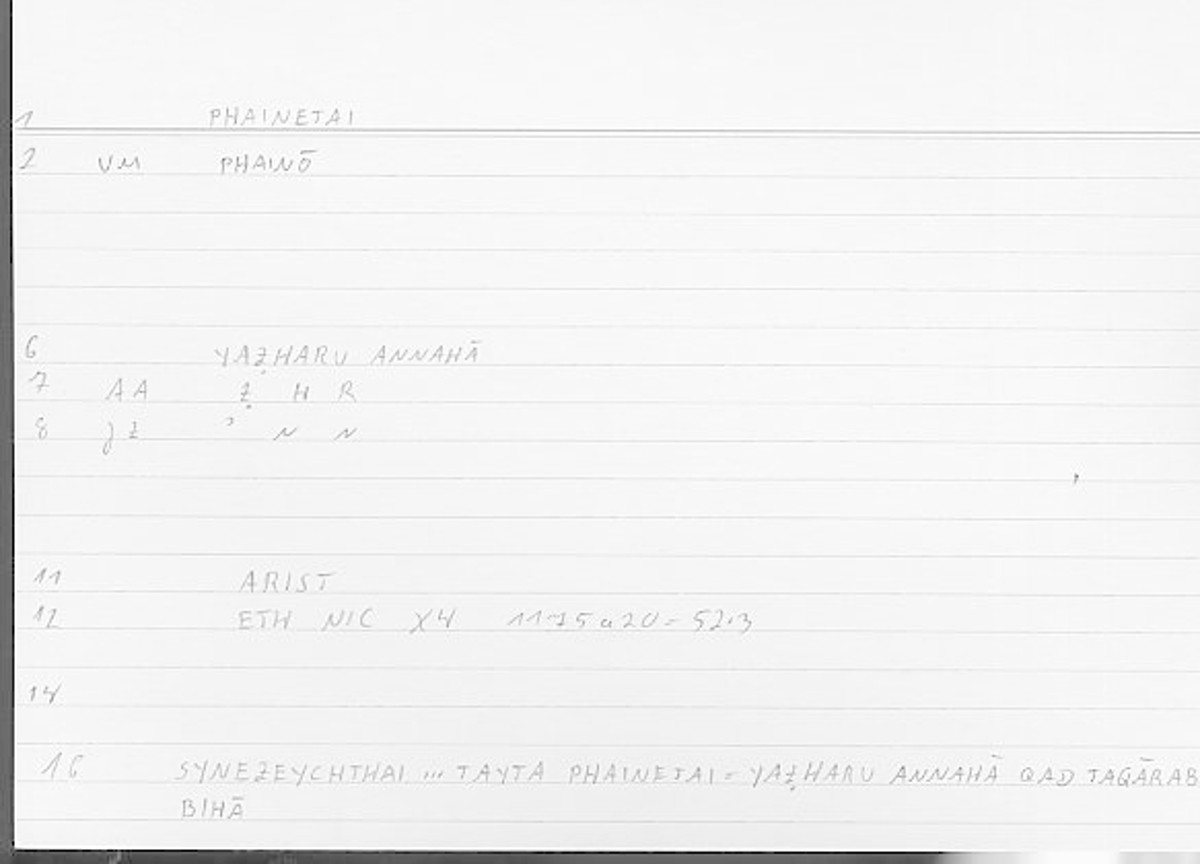 1 PHAINETAI
2 VM PHAINŌ
6 YAẒHARU ANNAHĀ
7 AA Ẓ H R
8 ʾ N N
11 ARIST
12 ETH NIC X4 1175a20 = 52.3
14
16 SYNEZEYCHTHAI ... TAYTA PHAINETAI = YAẒHARU ANNAHĀ QAD TAQĀRAB
BIHĀ